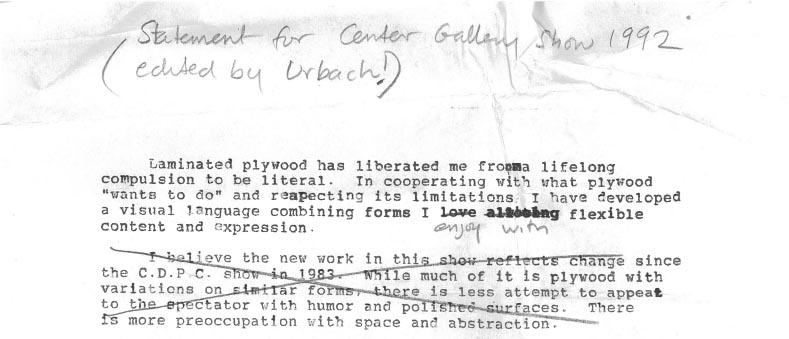 Statement for Center Gallery Show 1992
(edited by Urbach!)
Laminated plywood has liberated me from a lifelong
compulsion to be literal. In cooperating with what plywood
"wants to do" and reapecting its limitations I have developed
a visual language combining forms I love flexible
enjoy with
content and expression.
I believe the new work in this show reflects change since
the C.D.P.C. show in 1983. While much of it is plywood with
variations on similar forms, there is less attempt to appeat
to the spectator with humor and polished surfaces. There
is more preoccupation with space and abstraction.